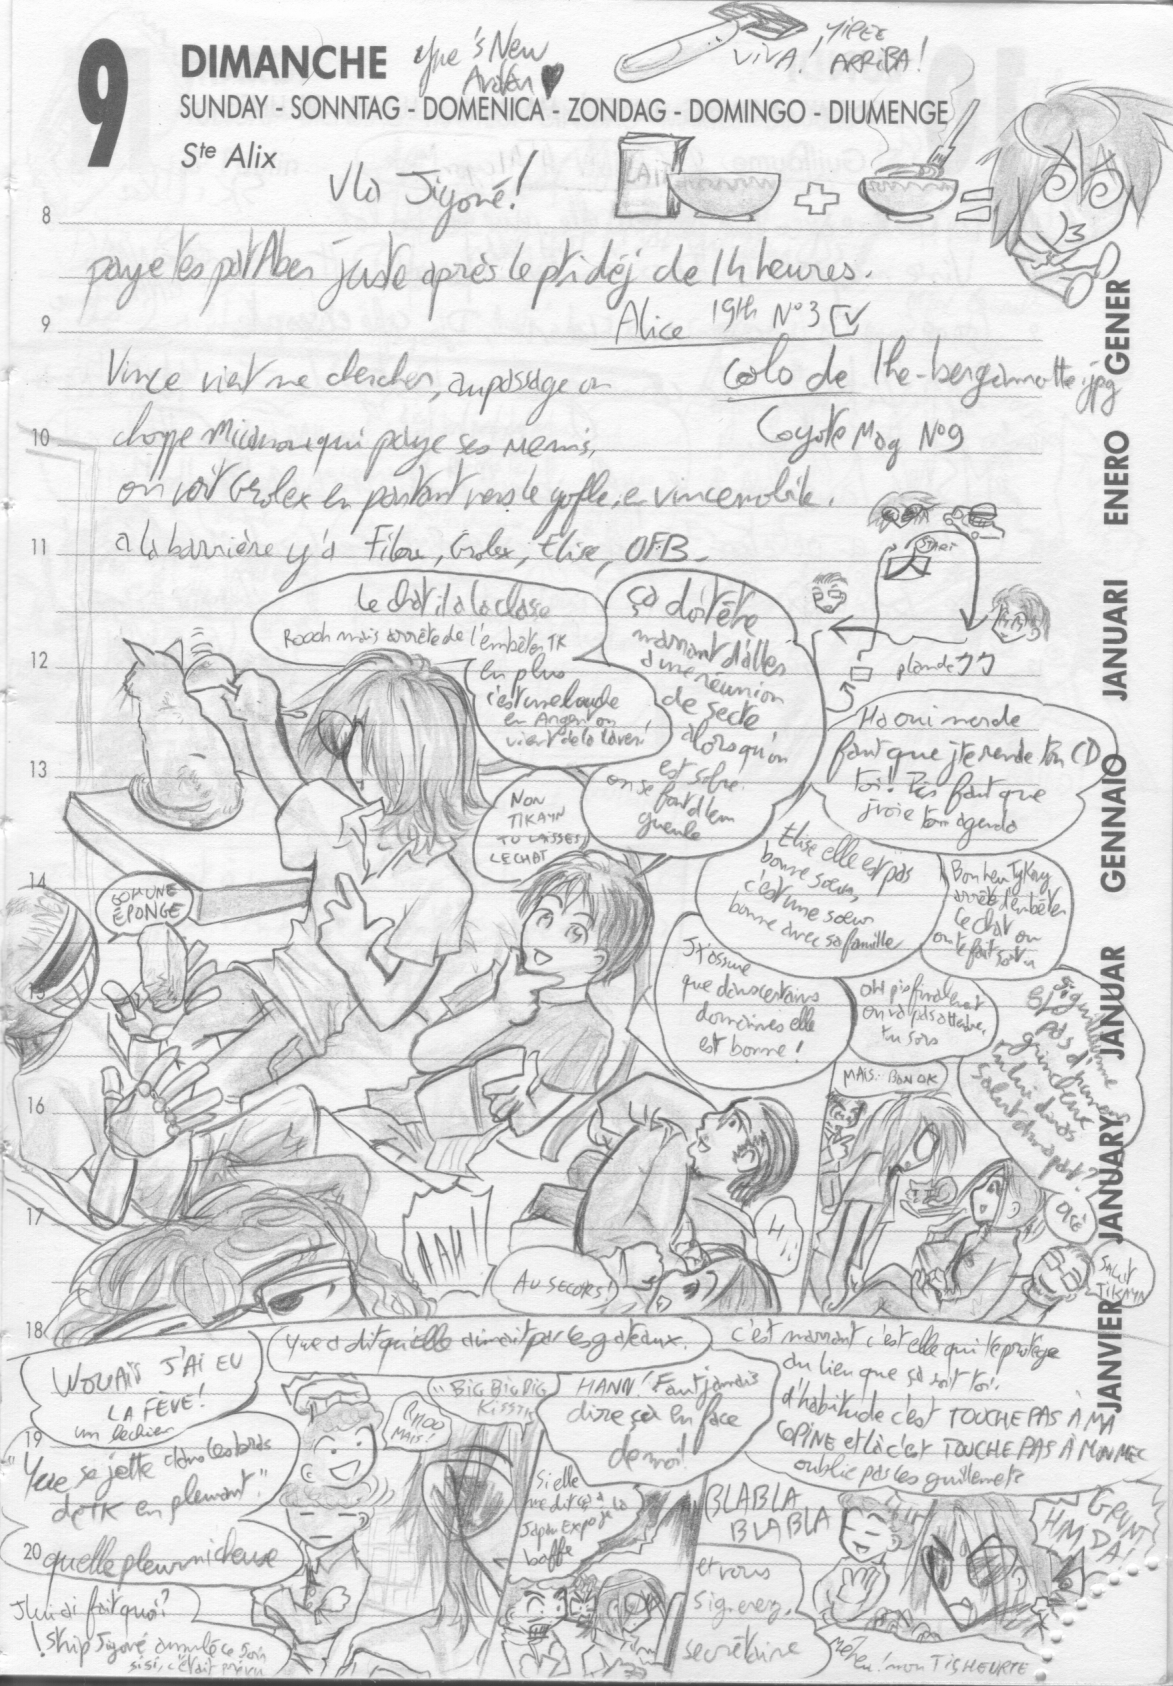 9
DIMANCHE
Yue's New
Avatar
SUNDAY - SONNTAG - DOMENICA - ZONDAG - DOMINGO - DIUMENGE
Ste Alix
VIVA! YIPEE
ARRIBA!
LAIT
Vla Jigoné!
paye tes patAber juste après le ptidéj de 14 heures.
Alice 19th N°3
Vince vient me chercher, au passage on
choppe qui paye ses
on voit Grolex en partant vers le golfe, en vincemobile.
a la barrière y'a Filou, Grolex, Elise, OFB
colo de the-bergamotte.jpg
Coyote Mag N°9
START
8
9
10
11
12
13
14
15
16
17
18
19
20
GENER
ENERO
JANUARI
GENNAIO
JANUAR
JANUARY
JANVIER
Le chat il a la classe
Roooh mais arrête de l'embêter TK
en plus
c'est une
en Argent on
vient de la laver!
ça doit être
marrant d'aller
à une réunion
de secte
alors qu'on
est sobre.
on se fout d'leur
gueule
Ha oui merde
faut que j'te rende ton CD
toi! Pis faut que
j'voie ton agenda
NON
TIKAYN
TU LAISSES
LE CHAT
GOM UNE
ÉPONGE
Elise elle est pas
bonne soeur,
c'est une soeur
bonne avec sa famille
Bonheu TyKay
arrête d'embêter
le chat ou
on te fait sortir
J't'assure
que dans certains
domaines elle
est bonne!
oh! pis finalement
on va pas attendre,
tu sors
MAIS.. BON OK
si guillaume
est pas d'humeur
grincheux
tu lui diras
salut d'ma part?
OK
Salut
TIKAYN
AAH!!
AU SECORS!
H
Yue a dit qu'elle aimait pas les gateaux.
c'est marrant c'est elle qui te protège
au lieu que ça soit toi..
d'habitude c'est TOUCHE PAS À MA
COPINE et là c'est TOUCHE PAS À MON MEC
oublie pas les guillemets
WOUAIS J'AI EU
LA FÈVE!
"Yue se jette dans les bras
de TK en pleurant."
quelle pleurnicheuse
J'lui ai fait quoi?
BIG BIG DIG
KISSTK
Rhooo
MAIS!
HANN! Faut jamais
dire ça en face
de moi!
Si elle
me dit ça à la
Japan Expo je
baffe
BLABLA
BLABLA
et vous
signerez,
secrétaire
GRUNT
HM DA!
mon TISHEURTE